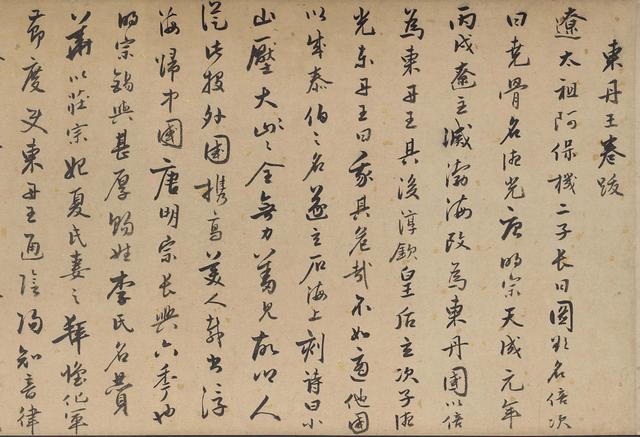 東丹王卷跋
遼太祖阿保機二子長曰圖欲名倍次
曰堯骨名德光唐明宗天成元年
丙戌遼主滅渤海改為東丹國以倍
為東丹王其後淳欽皇后立次子德
光東丹王曰我其危哉不如適他國
以成泰伯之名遂立石海上刻詩曰小
山壓大山大山全無力羞見故鄉人
從此投外國攜高美人載書浮
海歸中國唐明宗長興六季也
明宗錫與甚厚賜姓李氏名贊
華以莊宗妃夏氏妻之拜懷化軍
節度史東丹王通陰陽知音律